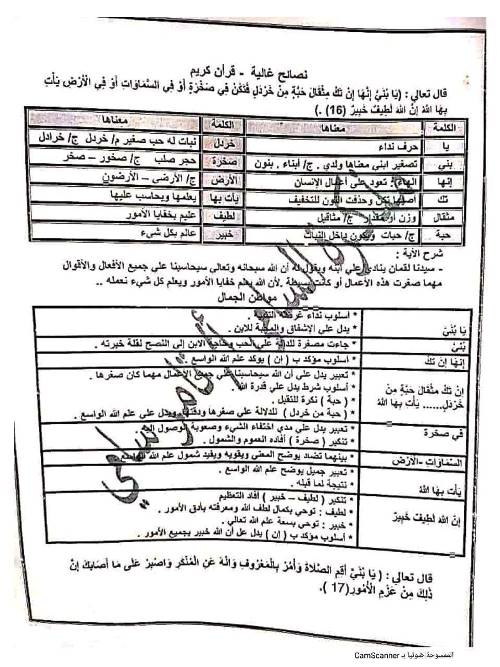 نصائح غالية - قرآن كريم
قال تعالى : (يَا بُنَيَّ إِنَّهَا إِنْ تَكُ مِثْقَالَ حَبَّةٍ مِنْ خَرْدَلٍ فَتَكُنْ فِي صَخْرَةٍ أَوْ فِي السَّمَاوَاتِ أَوْ فِي الْأَرْضِ يَأْتِ
بِهَا اللَّهُ إِنَّ اللَّهَ لَطِيفٌ خَبِيرٌ (16) .)
الكلمة معناها الكلمة معناها
يا حرف نداء خردل نبات له حب صغير م/ خردل ج/ خرادل
بنى تصغير ابنى معناها ولدي . ج/ أبناء . بنون صخرة حجر صلب ج/ صخور – صخر
إنها الهاء : تعود على أعمال الإنسان الأرض ج/ الأرضى – الأرضون
تك أصلها تكن وحذفت النون للتخفيف يأت بها يعلمها ويحاسب عليها
مثقال وزن أو مقدار ج/ مثاقيل لطيف عليم بخفايا الأمور
حبة ج/ حبات خبير عالم بكل شيء
شرح الآية :
- سيدنا لقمان ينادي على ابنه ويقول له أن الله سبحانه وتعالى سيحاسبنا على جميع الأفعال والأقوال
مهما صغرت هذه الأعمال أو كانت بسيطة .لأن الله يعلم خفايا الأمور ويعلم كل شيء نعمله ..
مواطن الجمال
يَا بُنَيَّ * أسلوب نداء
* يدل على الإشفاق والمحبة للابن .
بُنَيَّ * جاءت مصغرة للدلالة على الحب الابن إلى النصح لقلة خبرته .
إِنَّهَا إِنْ تَكُ * أسلوب مؤكد ب ( إن ) يؤكد علم الله الواسع .
إِنْ تَكُ مِثْقَالَ حَبَّةٍ مِنْ خَرْدَلٍ...... يَأْتِ بِهَا اللَّهُ * تعبير يدل على أن الله سيحاسبنا على جميع الأعمال مهما كان صغرها .
* أسلوب شرط يدل على قدرة الله .
* ( حبة ) نكرة للتقليل .
* ( حبة من خردل ) للدلالة على صغرها على علم الله الواسع .
فى صخرة * تعبير يدل على مدى اختفاء الشيء وصعوبة الوصول إليه .
* تنكير ( صخرة ) أفاده العموم والشمول .
السَّمَاوَاتِ -الْأَرْضِ * بينهما تضاد يوضح المعنى ويقويه ويفيد شمول علم الله الواسع .
يَأْتِ بِهَا اللَّهُ * تعبير جميل يوضح علم الله الواسع .
* نتيجة لما قبله .
إِنَّ اللَّهَ لَطِيفٌ خَبِيرٌ * تنكير ( لطيف – خبير ) أفاد التعظيم
* لطيف : توحي بكمال لطف الله ومعرفته بأدق الأمور .
* خبير : توحي بسعة علم الله تعالي .
* أسلوب مؤكد ب ( إن ) يدل على أن الله خبير بجميع الأمور .
قال تعالى : ( يَا بُنَيَّ أَقِمِ الصَّلَاةَ وَأْمُرْ بِالْمَعْرُوفِ وَانْهَ عَنِ الْمُنْكَرِ وَاصْبِرْ عَلَى مَا أَصَابَكَ إِنَّ
ذَلِكَ مِنْ عَزْمِ الْأُمُورِ(17 ).
الممسوحة ضوئيا بـ CamScanner